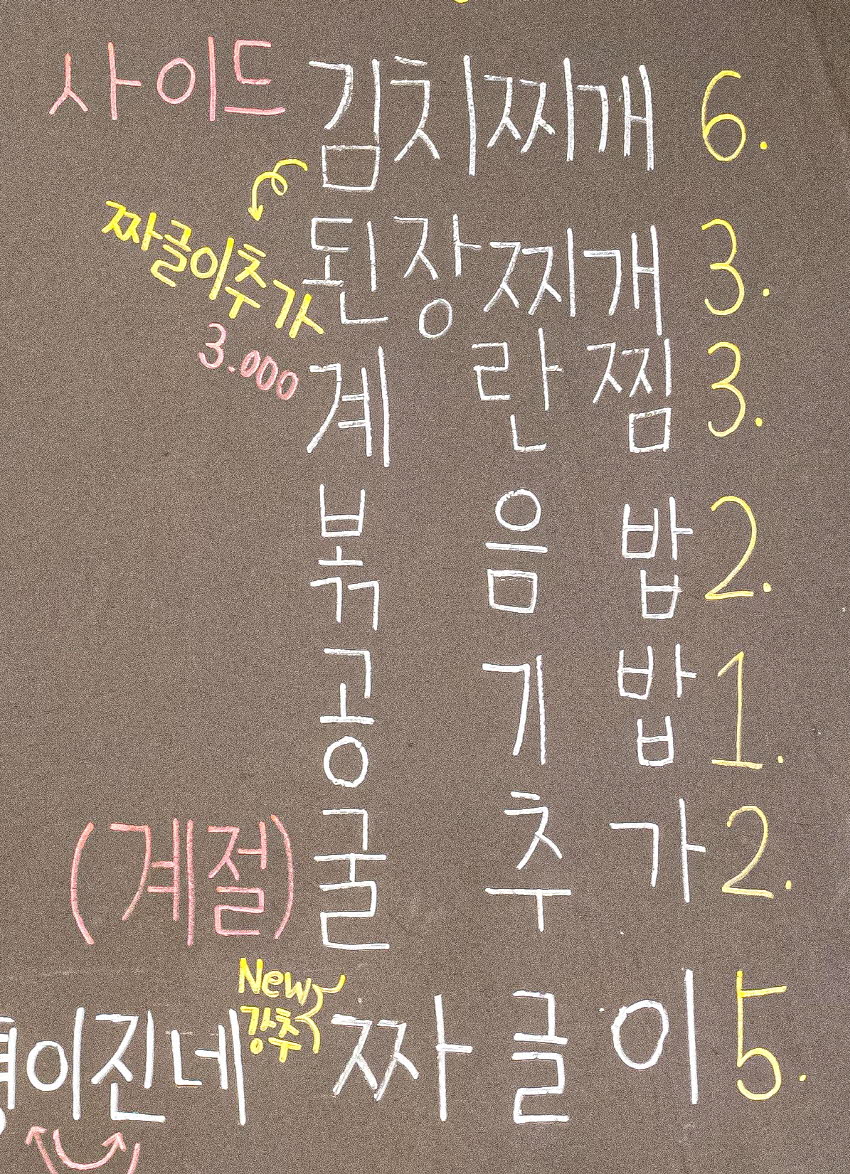 사이드 김치찌개 6.
짜글이추가
3.000
된장찌개 3.
계란찜 3.
볶음밥 2.
공기밥 1.
(계절) 굴추가 2.
New
강추
이진네 짜글이 5.